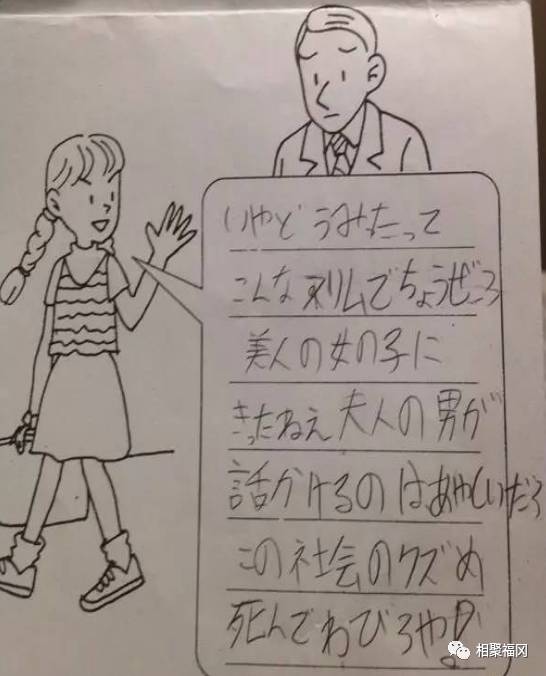 いやどうみたって
こんなスリムでちょうぜつ
美人の女の子に
きったねえ夫人の男が
話かけるのはあやしいだろ
この社会のクズめ
死んでわびろや
相聚福冈